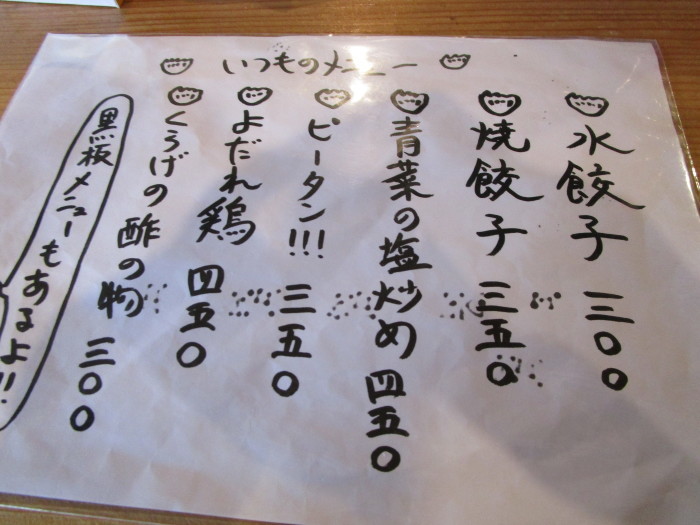 いつものメニュー
水餃子 三〇〇
焼餃子 三五〇
青菜の塩炒め 四五〇
ピータン!!! 三五〇
よだれ鶏 四五〇
くらげの酢の物 三〇〇
黒板メニューもあるよ!!